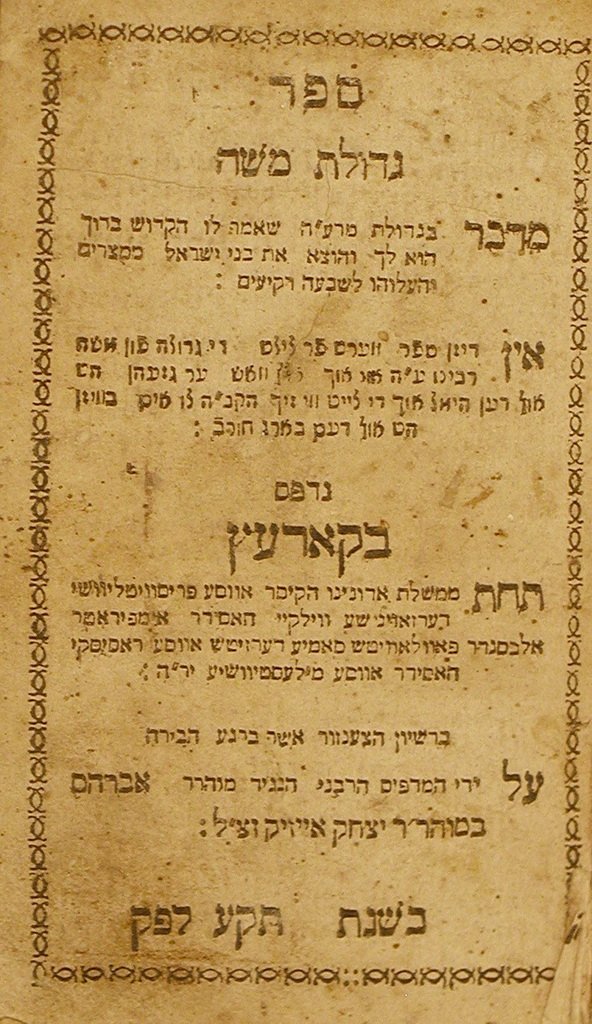 ספר
גדולת משה
מדבר בגדולת מרע״ה שאמר לו הקדוש ברוך
הוא לך והוצא את בני ישראל ממצרים
והעלוהו לשבעה רקיעים :
אין דיזן ספר ווערט פר ציילט די גדולה פון משה
רבינו ע״ה אונ אויך וואש ער גזעהן הט
אין דען הימל אויך די צייט ווי זיך הקב״ה צו אים בוויזן
הט אויף דעם בארג חורב :
נדפס
בקארעץ
תחת ממשלת אדונינו הקיסר אווסע פריסוויטליוושי
דערזאוינישע ווילקיי האסידר אימפיראטר
אלכסנדר פאוולאוויטש סאמיע דערזיטש אווסע ראסיסקי
האסידר אווסע מילעסטיוושיע יר״ה :
ברשיון הצענזור אשר ברגע הבירה
על ידי המדפיס הרבני הנגיד מוהרר אברהם
במוהר״ר יצחק אייזיק זצ״ל :
בשנת תקע לפק